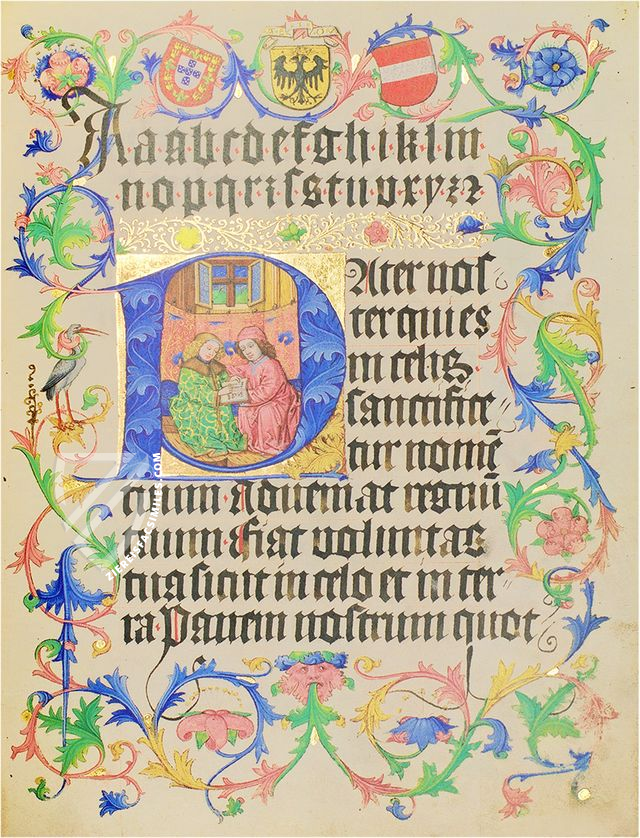 A a a b c d e f g h i k l m
n o p q r ꝛ ſ s t u v x y z ꝛ
Pater noſ
ter qui es
in celis
ſanctifice
tur nomē
tuum · Adveniat regnū
tuum · Fiat voluntas
tua ſicut in celo et in ter
ra · Panem noſtrum quot
ZIEREIS-FAKSIMILES.COM